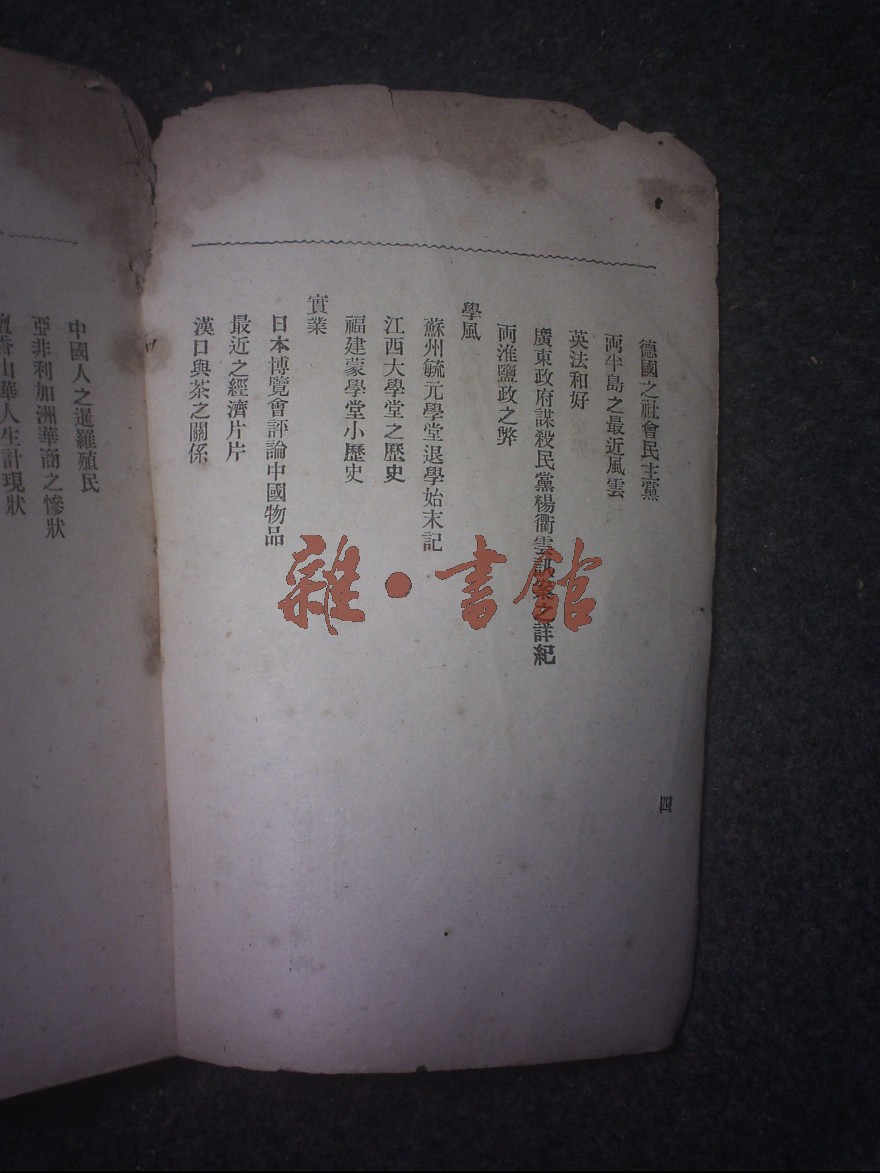 德國之社會民主黨
両半島之最近風雲
英法和好
廣東政府謀殺民黨楊衢雲訊案之詳紀
両淮鹽政之弊
學風
蘇州毓元學堂退學始末記
江西大學堂之歷史
福建蒙學堂小歷史
實業
日本博覽會評論中國物品
最近之經濟片片
漢口與茶之關係
四
中國人之暹羅殖民
亞非利加洲華商之慘狀
香山華人生計現狀
雜·書館